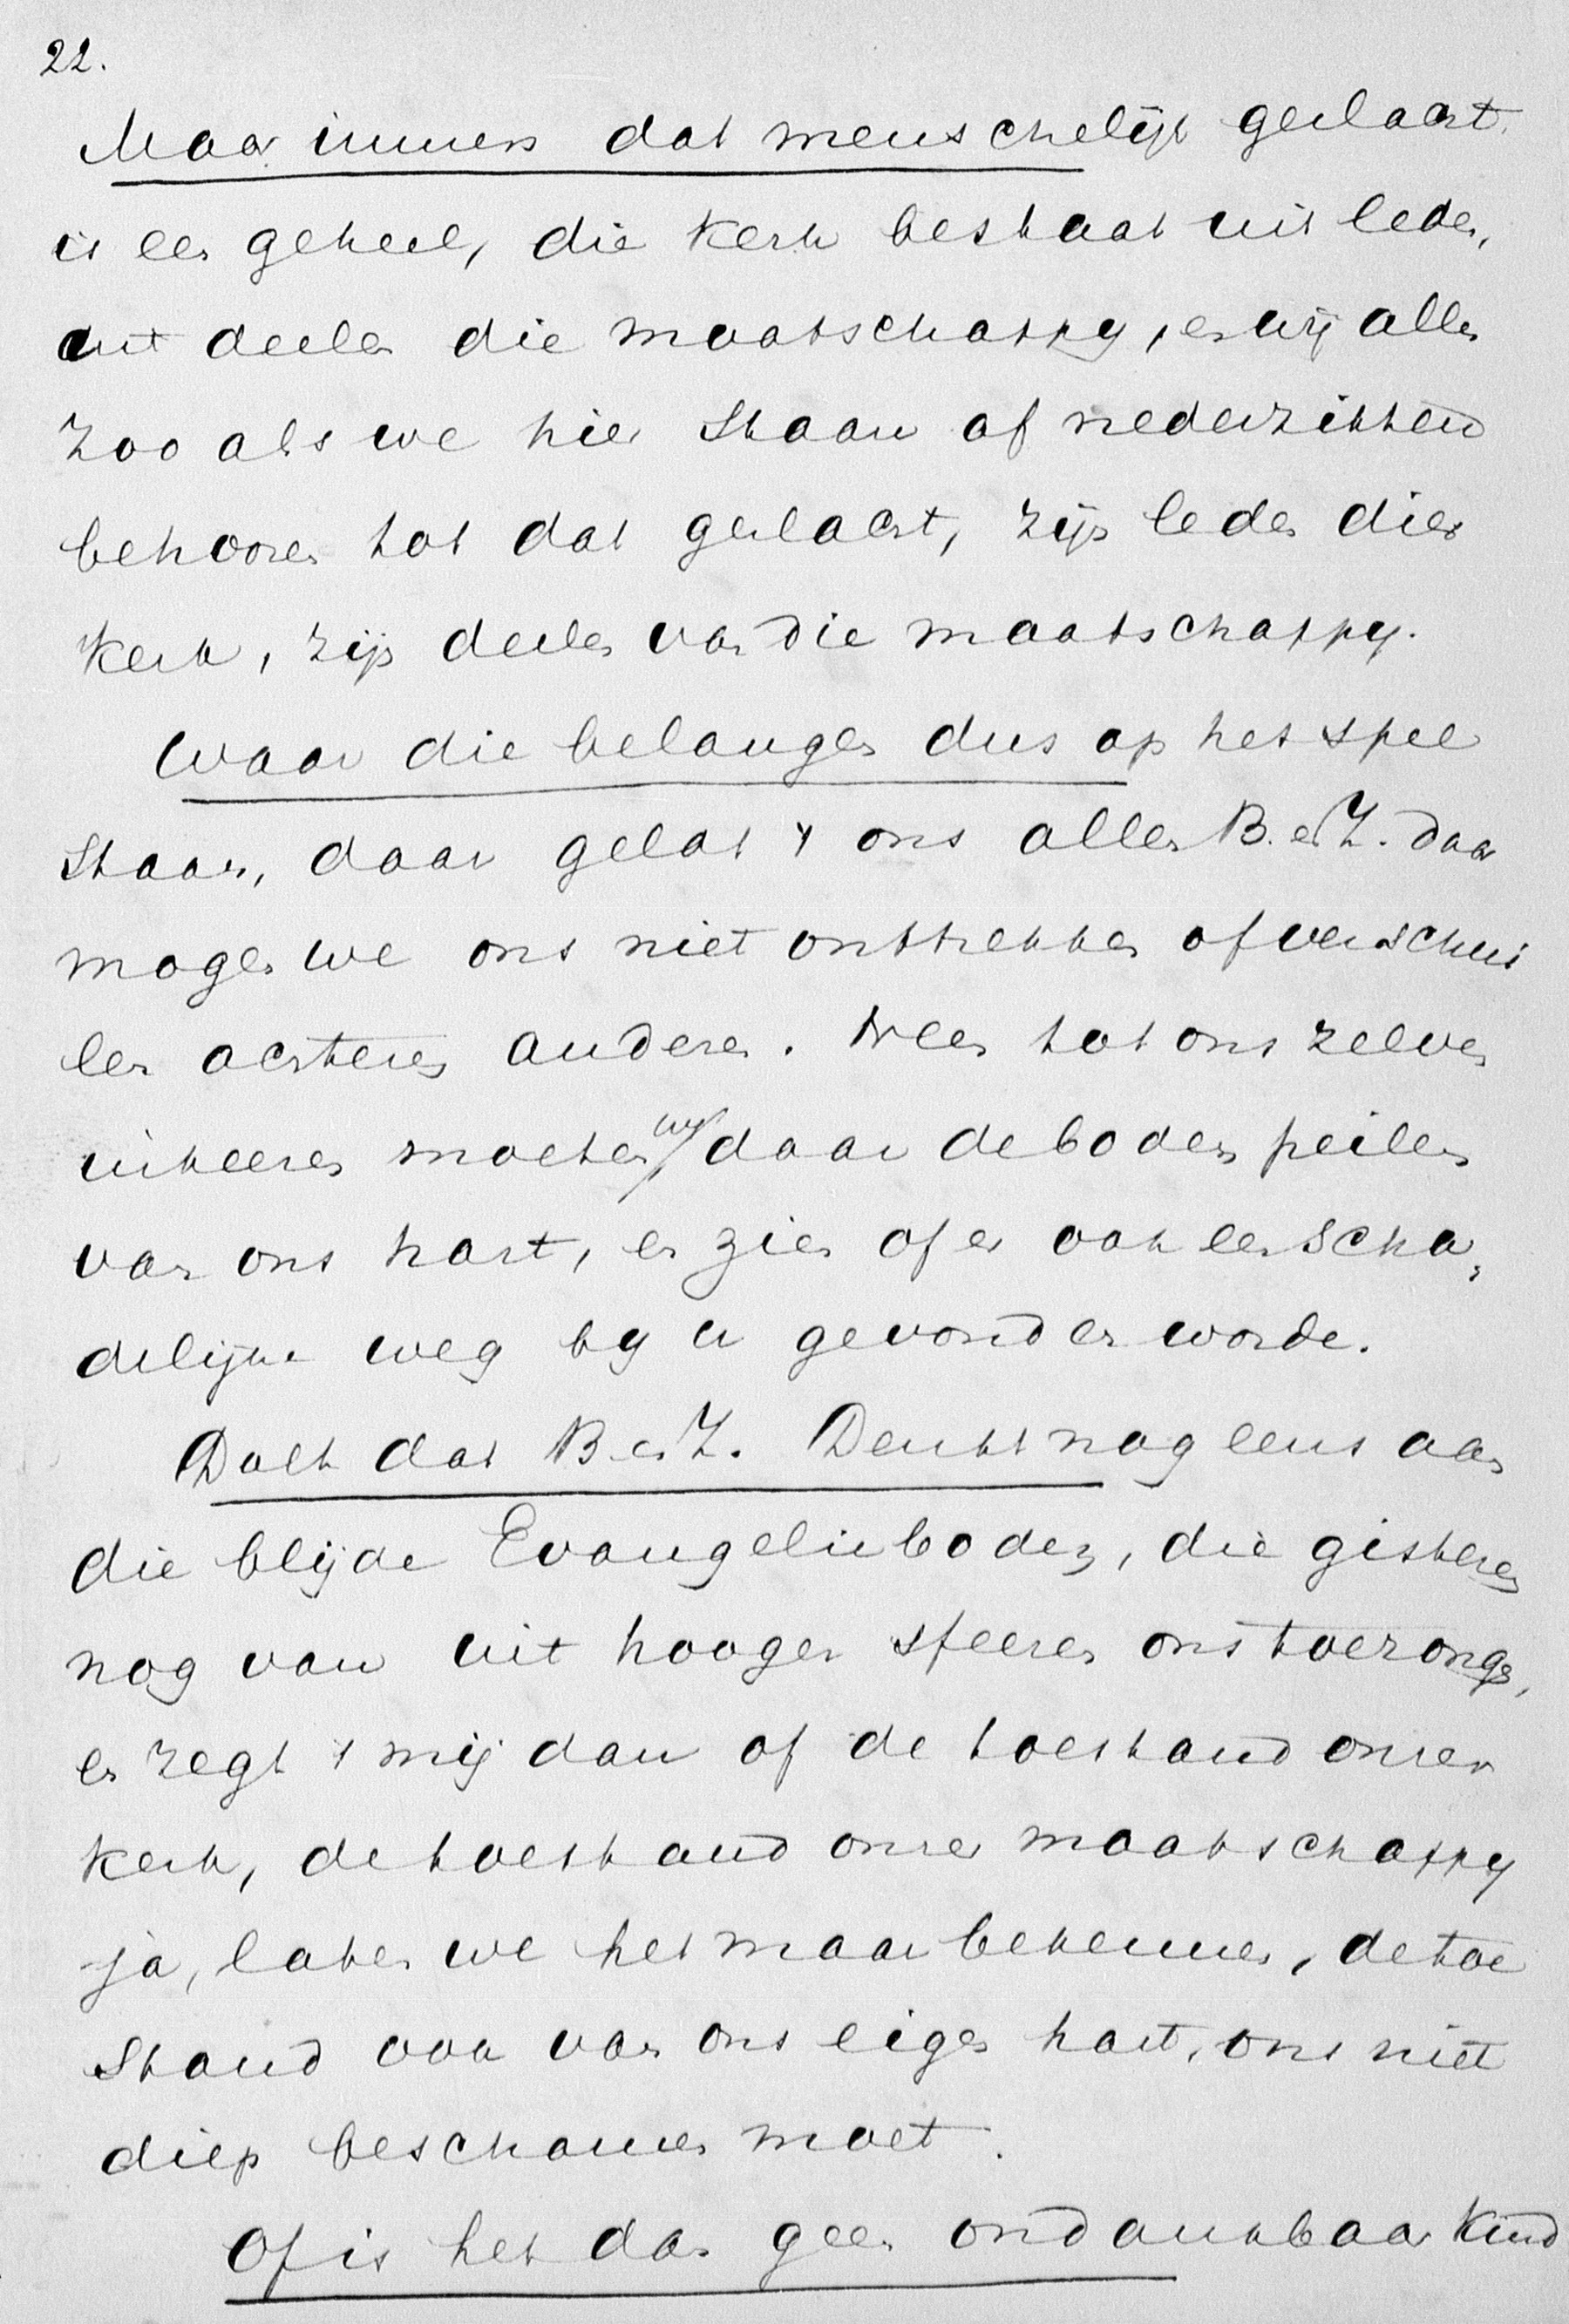 22.
Maar immers dat menschelijk geslacht
is een geheel, die kerk bestaat uit leden,
uit deelen die maatschappy, en wij allen
zoo als we hier staan of nederzitten
behooren tot dat geslacht, zijn leden dier
kerk, zijn deelen van die maatschappy.
Waar die belangen dus op het spel
staan, daar geldt 't ons allen B. en Z. daar
mogen we ons niet onttrekken of verschui
len achter een andere. Neen tot ons zelven
inkeeren moeten wy daar de bodem peilen
van ons hart, en zien of er ook een scha,
delijke weg by u gevonden worde.
Doet dat B. en Z. Denkt nog eens aan
die blijde Evangelieboden, die gisteren
nog van uit hooger sfeeren ons toezongen,
en zegt 't mij dan of de toestand onzer
kerk, de toestand onzer maatschappy
ja, laten we het maar bekennen, de toe
stand ook van ons eigen hart, ons niet
diep beschamen moet.
Of is het dan geen ondankbaar kind